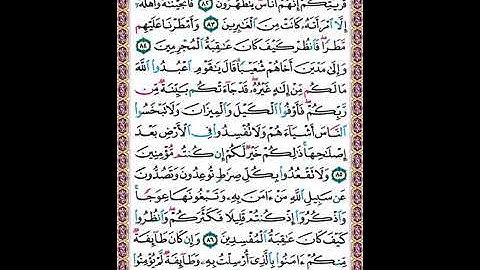 قَرْيَتِكُمْ إِنَّهُمْ أُنَاسٌ يَتَطَهَّرُونَ ٨٢ فَأَنجَيْنَٰهُ وَأَهْلَهُۥٓ
إِلَّا ٱمْرَأَتَهُۥ كَانَتْ مِنَ ٱلْغَٰبِرِينَ ٨٣ وَأَمْطَرْنَا عَلَيْهِم
مَّطَرًا فَٱنظُرْ كَيْفَ كَانَ عَٰقِبَةُ ٱلْمُجْرِمِينَ ٨٤
وَإِلَىٰ مَدْيَنَ أَخَاهُمْ شُعَيْبًا قَالَ يَٰقَوْمِ ٱعْبُدُوا۟ ٱللَّهَ
مَا لَكُم مِّنْ إِلَٰهٍ غَيْرُهُۥ قَدْ جَآءَتْكُم بَيِّنَةٌ مِّن
رَّبِّكُمْ فَأَوْفُوا۟ ٱلْكَيْلَ وَٱلْمِيزَانَ وَلَا تَبْخَسُوا۟
ٱلنَّاسَ أَشْيَآءَهُمْ وَلَا تُفْسِدُوا۟ فِى ٱلْأَرْضِ بَعْدَ
إِصْلَٰحِهَا ذَٰلِكُمْ خَيْرٌ لَّكُمْ إِن كُنتُم مُّؤْمِنِينَ
٨٥ وَلَا تَقْعُدُوا۟ بِكُلِّ صِرَٰطٍ تُوعِدُونَ وَتَصُدُّونَ
عَن سَبِيلِ ٱللَّهِ مَنْ ءَامَنَ بِهِۦ وَتَبْغُونَهَا عِوَجًا
وَٱذْكُرُوٓا۟ إِذْ كُنتُمْ قَلِيلًا فَكَثَّرَكُمْ وَٱنظُرُوا۟
كَيْفَ كَانَ عَٰقِبَةُ ٱلْمُفْسِدِينَ ٨٦ وَإِن كَانَ طَآئِفَةٌ
مِّنكُمْ ءَامَنُوا۟ بِٱلَّذِىٓ أُرْسِلْتُ بِهِۦ وَطَآئِفَةٌ لَّمْ يُؤْمِنُوا۟